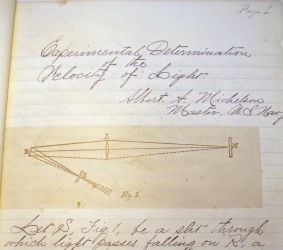 Page 1.
Experimental Determination
of the
Velocity of Light
Albert A. Michelson
Master, U.S. Navy
L
M
S
Fig. 1
Let S, Fig. 1, be a slit through
which light passes falling on R, a